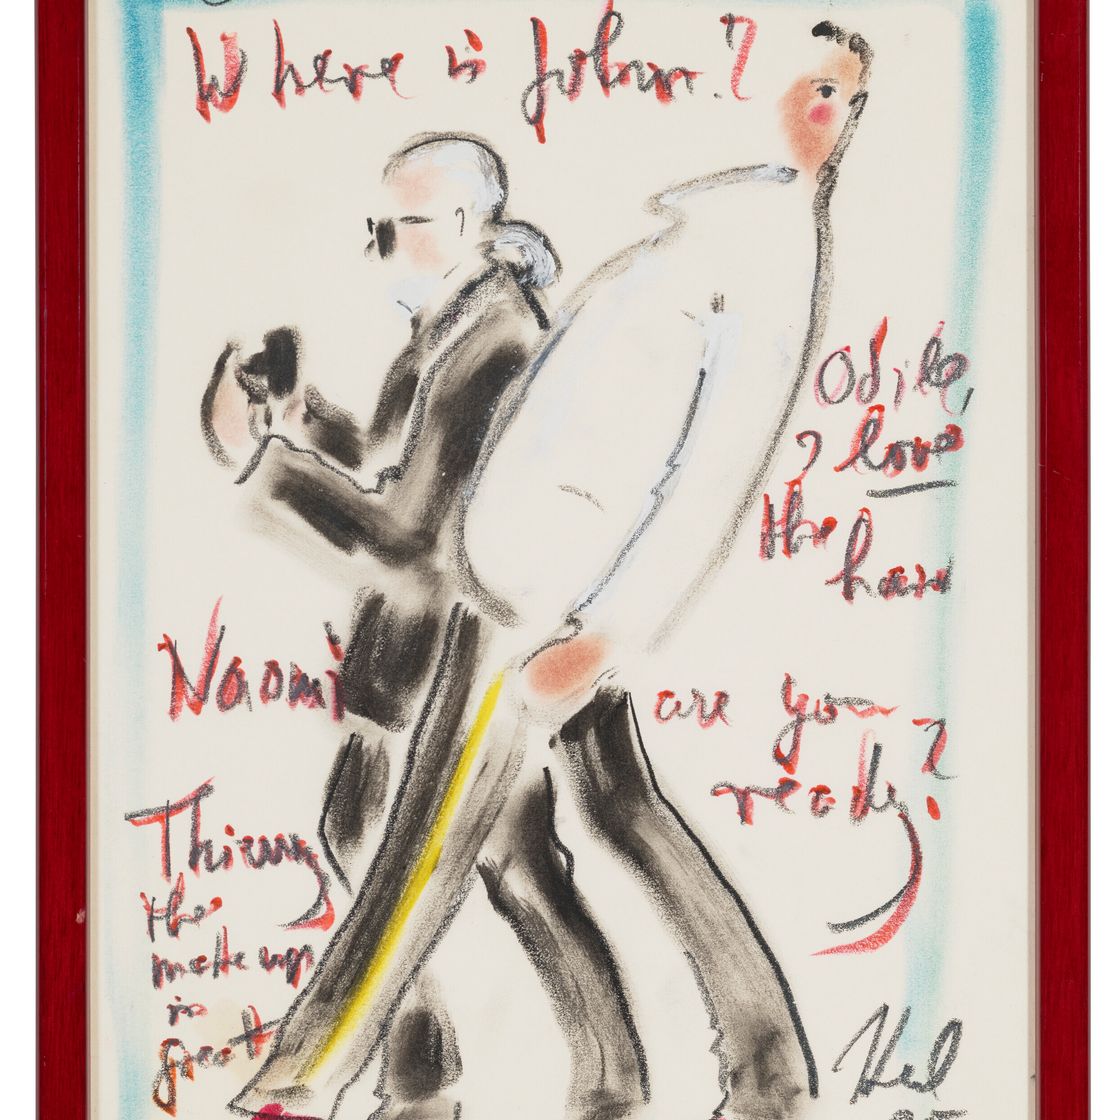 Where is John?
Odile,
I love
the hair
Naomi are you
ready?
Thierry
the
make up
is
great